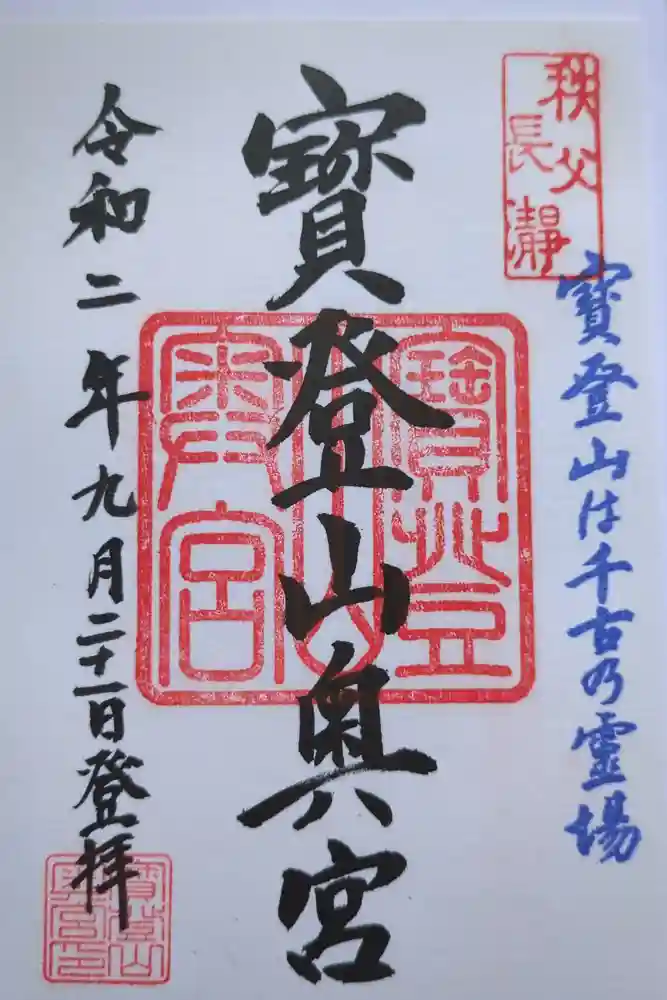 秩父
長瀞
寶登山は千古乃霊場
寶登山奥宮
寶登山
奥宮
令和二年九月二十一日登拝
寶登山
奥宮印